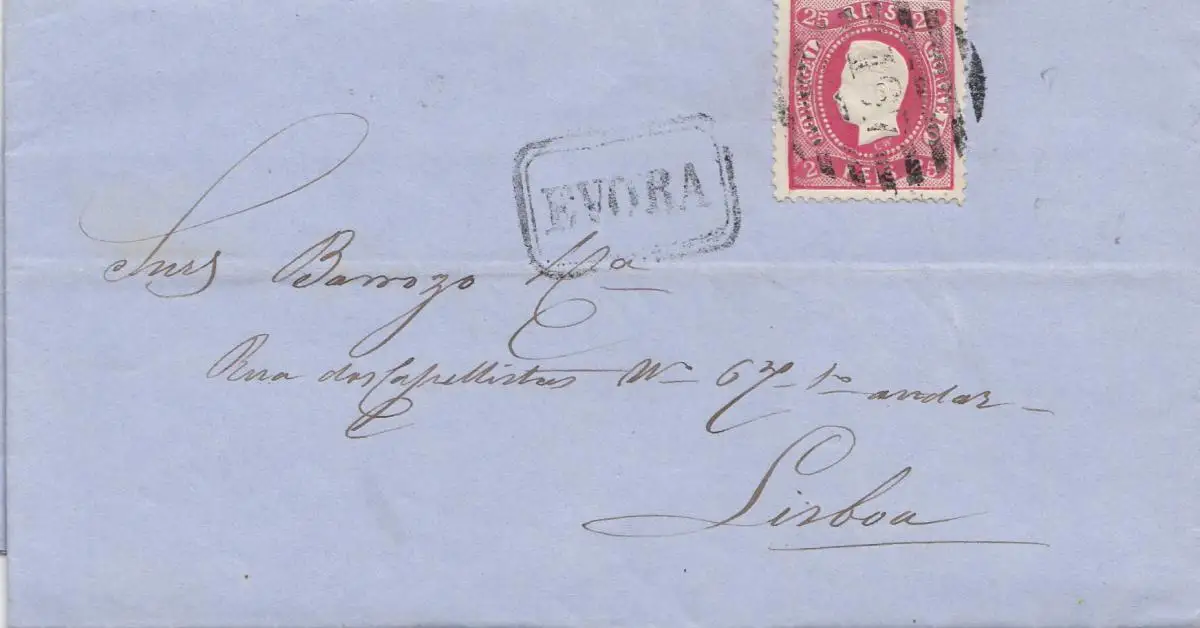 25 REIS 25
PORTUGAL CORREIO
EVORA
Luis Barrozo Cª
Rua dos Capellistas Nº 67 1º andar
Lisboa